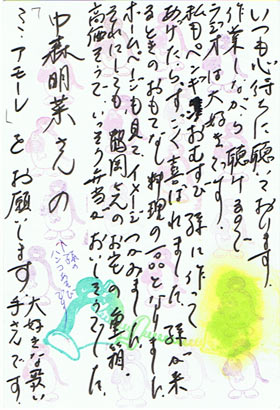 いつも心待ちに聴いてます。
作業しながら聴けるので
ラジオは大好きです。
私もペンギンおむすび孫に作って
あげたら、すごく喜ばれました。孫が来
るときのおもてなし料理の一品となりました。
ホームページも見てイメージつかめました。
それにしても鶴岡さんのお宅の重箱、
高価そうで、いっそう弁当がおいしそうでした。
中森明菜さんの
「ミ・アモーレ」をお願いします
大好きな歌い
手さんです。
↑孫の
ハンコあそびです